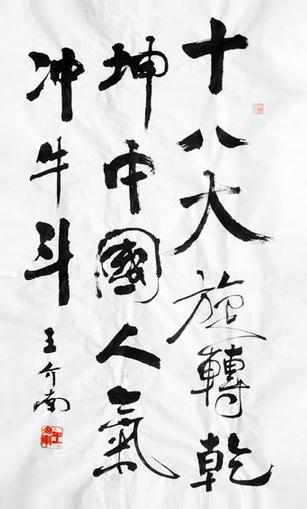 十八大旋轉乾
坤中國人氣
冲牛斗
王介南